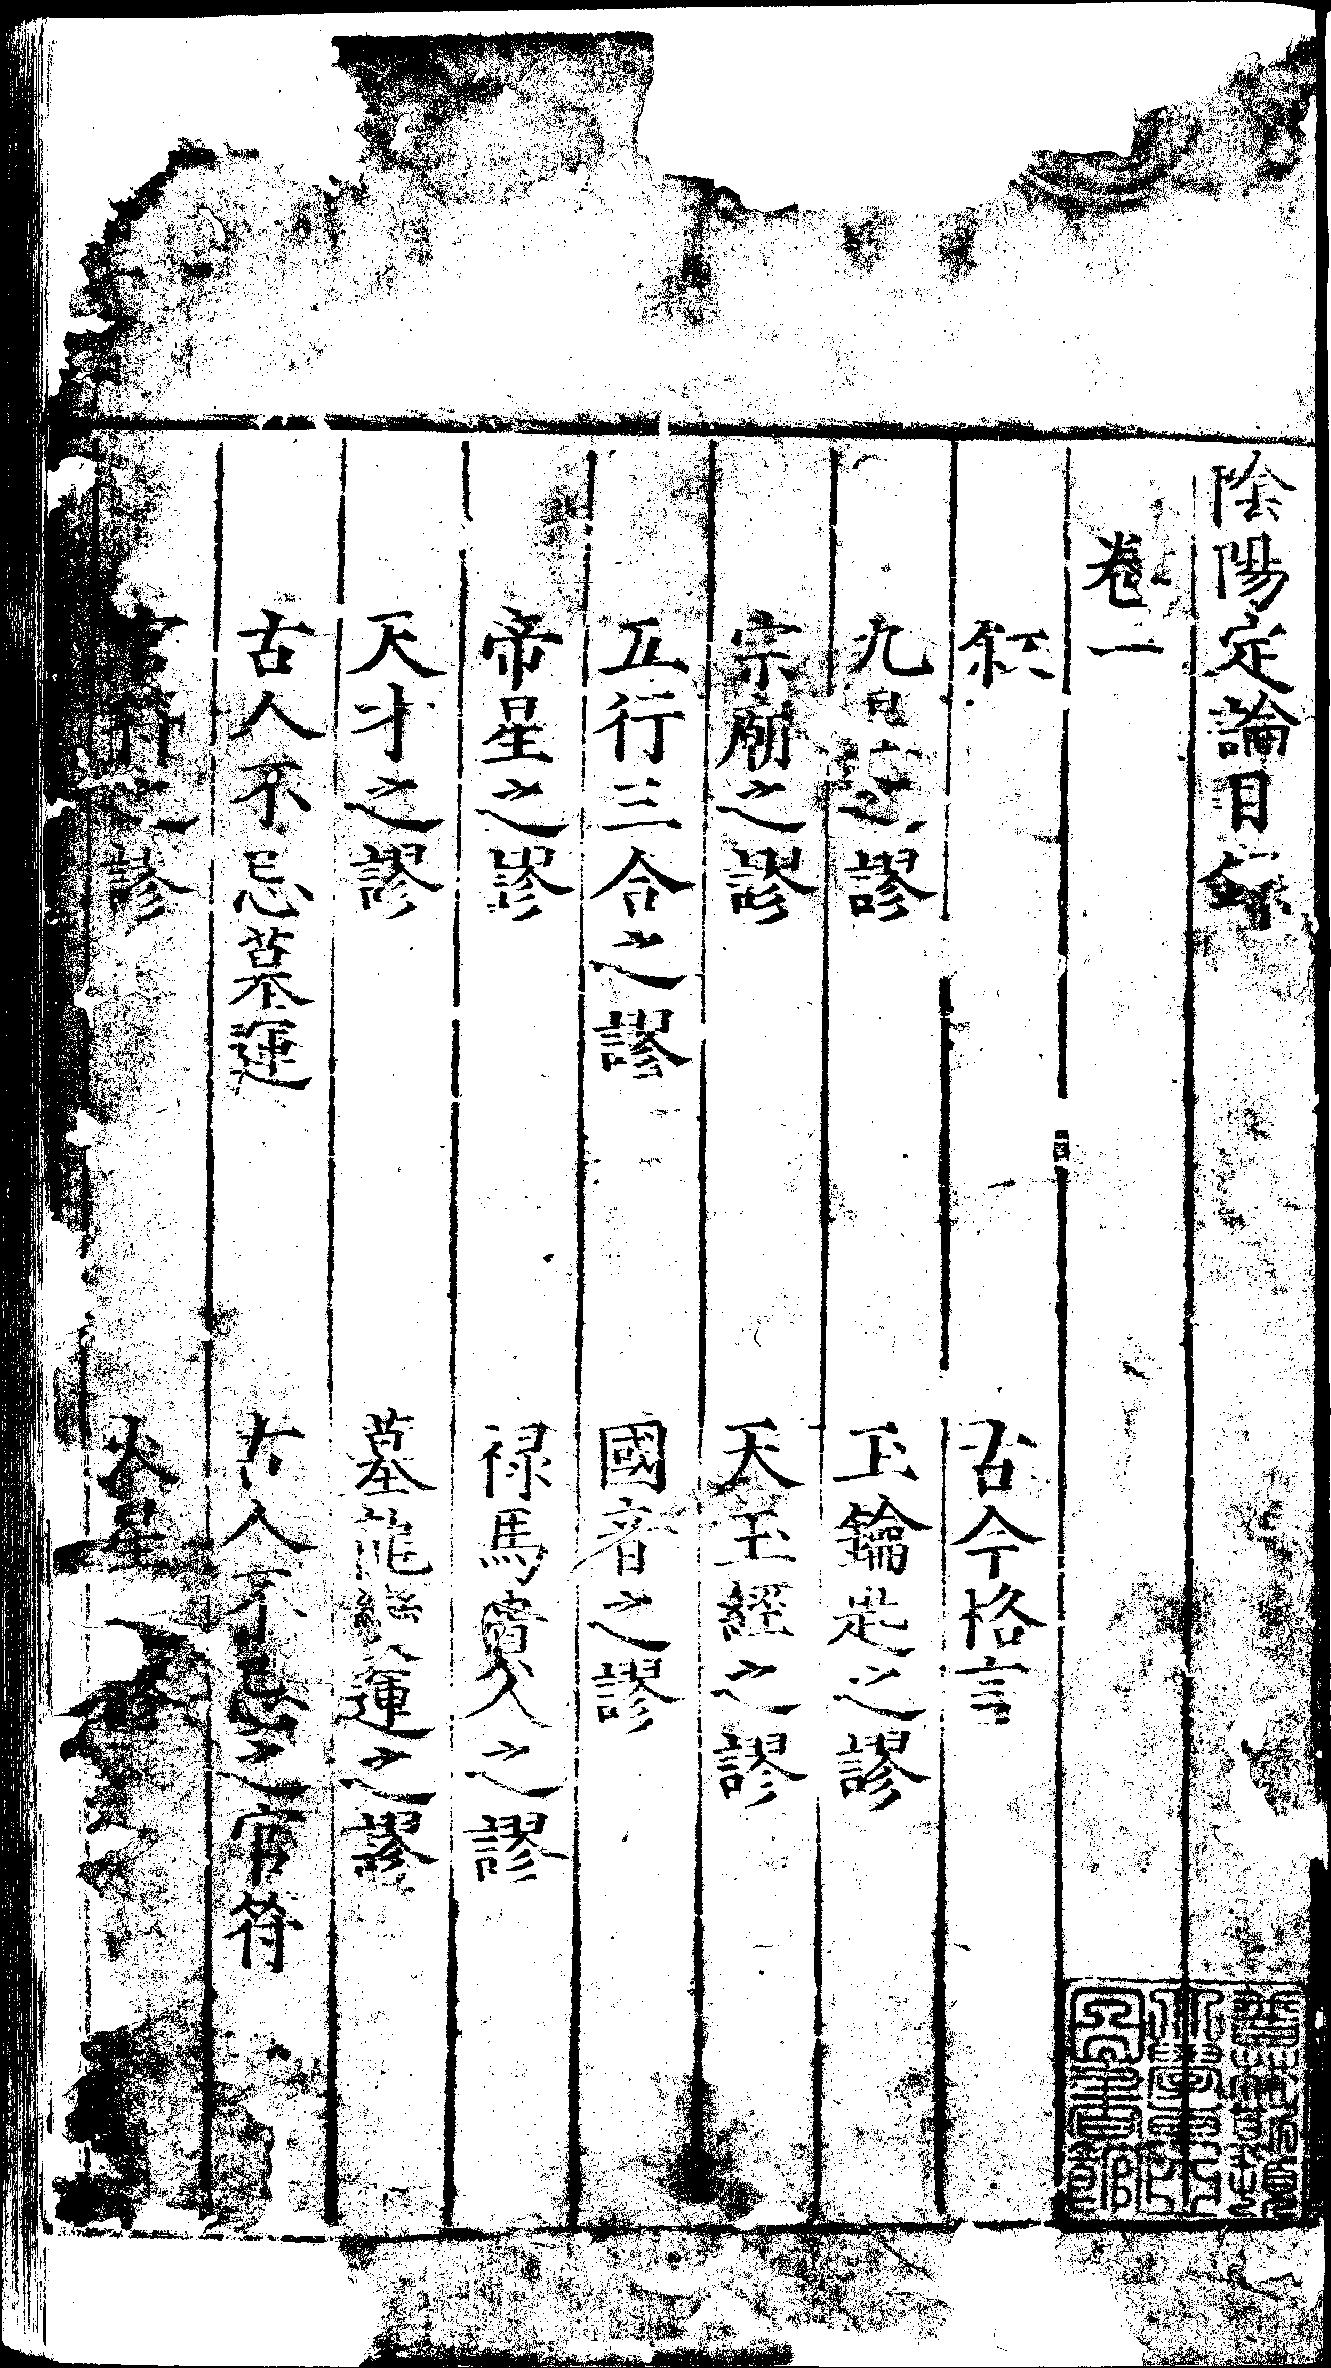 陰陽定論目錄
卷一
叙 古今格言
九星之謬 玉鑰匙之謬
宗廟之謬 天玉經之謬
五行三合之謬 國音之謬
帝星之謬 禄馬貴人之謬
天才之謬 墓龍變運之謬
古人不忌墓運 古人不忌官符
官符之謬 火星